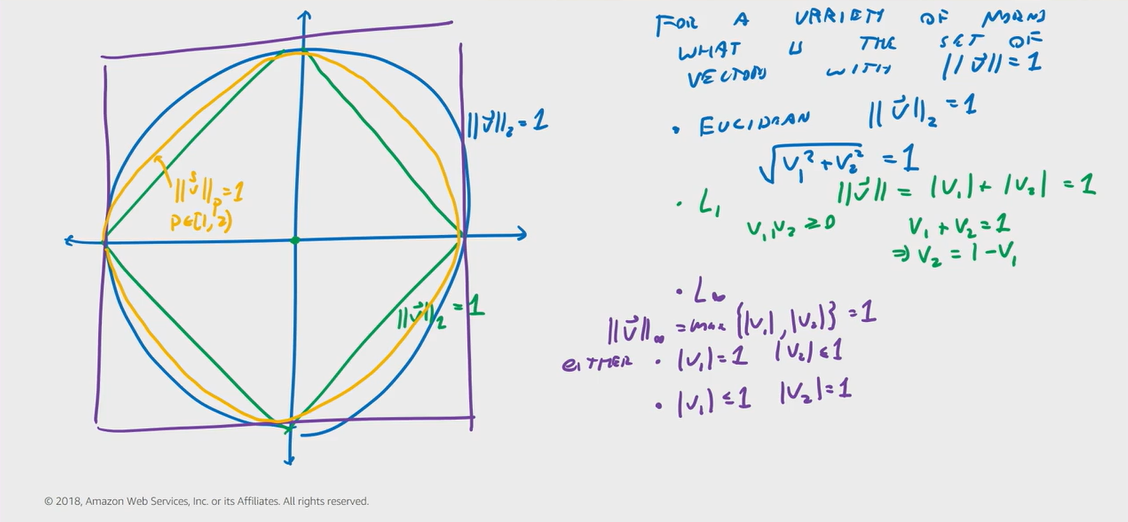 FOR A VARIETY OF NORMS
WHAT IS THE SET OF
VECTORS WITH ||v⃗|| = 1
||v⃗||₂ = 1
• EUCLIDEAN ||v⃗||₂ = 1
√(v₁² + v₂²) = 1
• L₁ ||v⃗|| = |v₁| + |v₂| = 1
v₁, v₂ ≥ 0 v₁ + v₂ = 1
⇒ v₂ = 1 - v₁
||v⃗||ₚ = 1
p ∈ [1, 2)
||v⃗||₂ = 1
• L∞
||v⃗||∞ = max {|v₁|, |v₂|} = 1
EITHER • |v₁| = 1 |v₂| ≤ 1
• |v₁| ≤ 1 |v₂| = 1
© 2018, Amazon Web Services, Inc. or its Affiliates. All rights reserved.